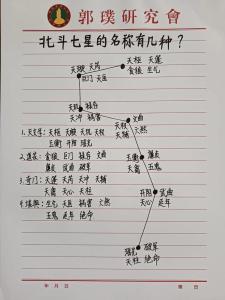 郭璞研究會
北斗七星的名称有几种？
天枢 天蓬
贪狼 生气
天璇 天芮
巨门 天医
天玑 禄存
天冲 祸害
天权 文曲
天辅 六煞
1.天文学：天枢 天璇 天玑 天权
玉衡 开阳 瑶光
2.道家：贪狼 巨门 禄存 文曲
廉贞 武曲 破军
3.奇门：天蓬 天芮 天冲 天辅
天禽 天心 天柱
4.堪舆：生气 天医 祸害 六煞
五鬼 延年 绝命
玉衡 廉贞
天禽 五鬼
开阳 武曲
天心 延年
瑶光 破军
天柱 绝命
年 月 日